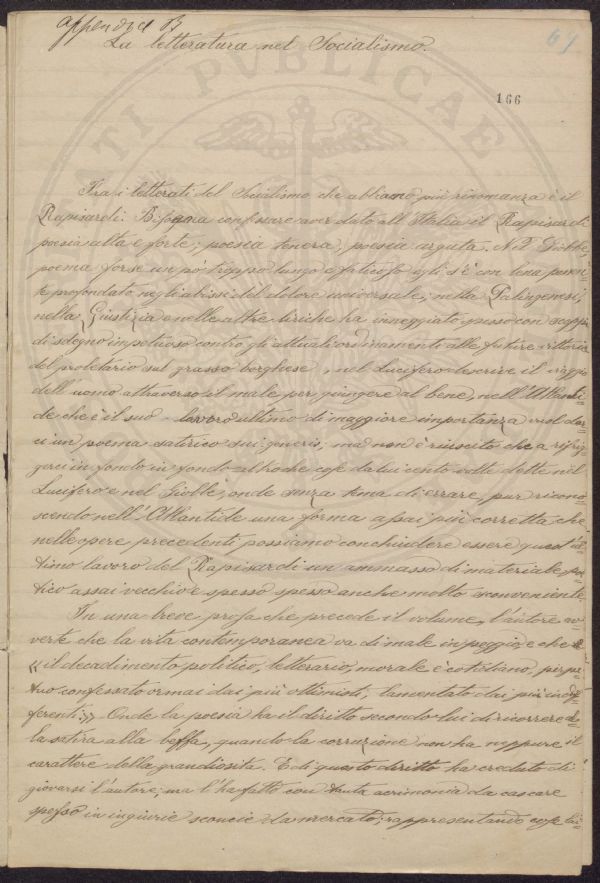 appendice B
La letteratura nel Socialismo.
69
166
Fra i letterati del Socialismo che abbiamo più rinomanza è il
Rapisardi. Bisogna confessare aver dato all'Italia il Rapisardi
poesia alta e forte; poesia tenera, poesia arguta. Nel Giobbe,
poema forse un pò troppo lungo e faticoso egli s'è con lena poten
te profondato negli abissi del dolore universale; nella Palingenesi,
nella Giustizia e nelle altre liriche ha inneggiato spesso con scoppi
di sdegno impetuoso contro gli attuali ordinamenti alle future vittorie
del proletario sul grasso borghese, nel Lucifero descrive il viaggio
dell'uomo attraverso il male per giungere al bene, nell'Atlanti=
de che è il suo lavoro ultimo di maggiore importanza vuol dar=
ci un poema satirico sui generis; ma non è riuscito che a rifrig=
gerci in fondo in fondo altro che cose da lui cento volte dette nel
Lucifero e nel Giobbe; onde senza tema di errare, pur ricono=
scendo nell'Atlantide una forma assai più corretta che
nelle opere precedenti possiamo conchiudere essere quest'ul=
timo lavoro del Rapisardi un ammasso di materiale poe=
tico assai vecchio e spesso spesso anche molto sconveniente.
In una breve prosa che precede il volume, l'autore av=
verte che la vita contemporanea va di male in peggio, e che
"il decadimento politico, letterario, morale è cotidiano, perpe=
tuo confessato ormai dai più ottimisti, lamentato dai più indif=
ferenti." Onde la poesia ha il diritto secondo lui di ricorrere da=
la satira alla beffa, quando la corruzione non ha neppure il
carattere della grandiosità. E di questo diritto ha creduto di
giovarsi l'autore; ma l'ha fatto con tanta acrimonia da cascare
spesso in ingiurie sconcie da mercato; rappresentando cose
PVBLICAE